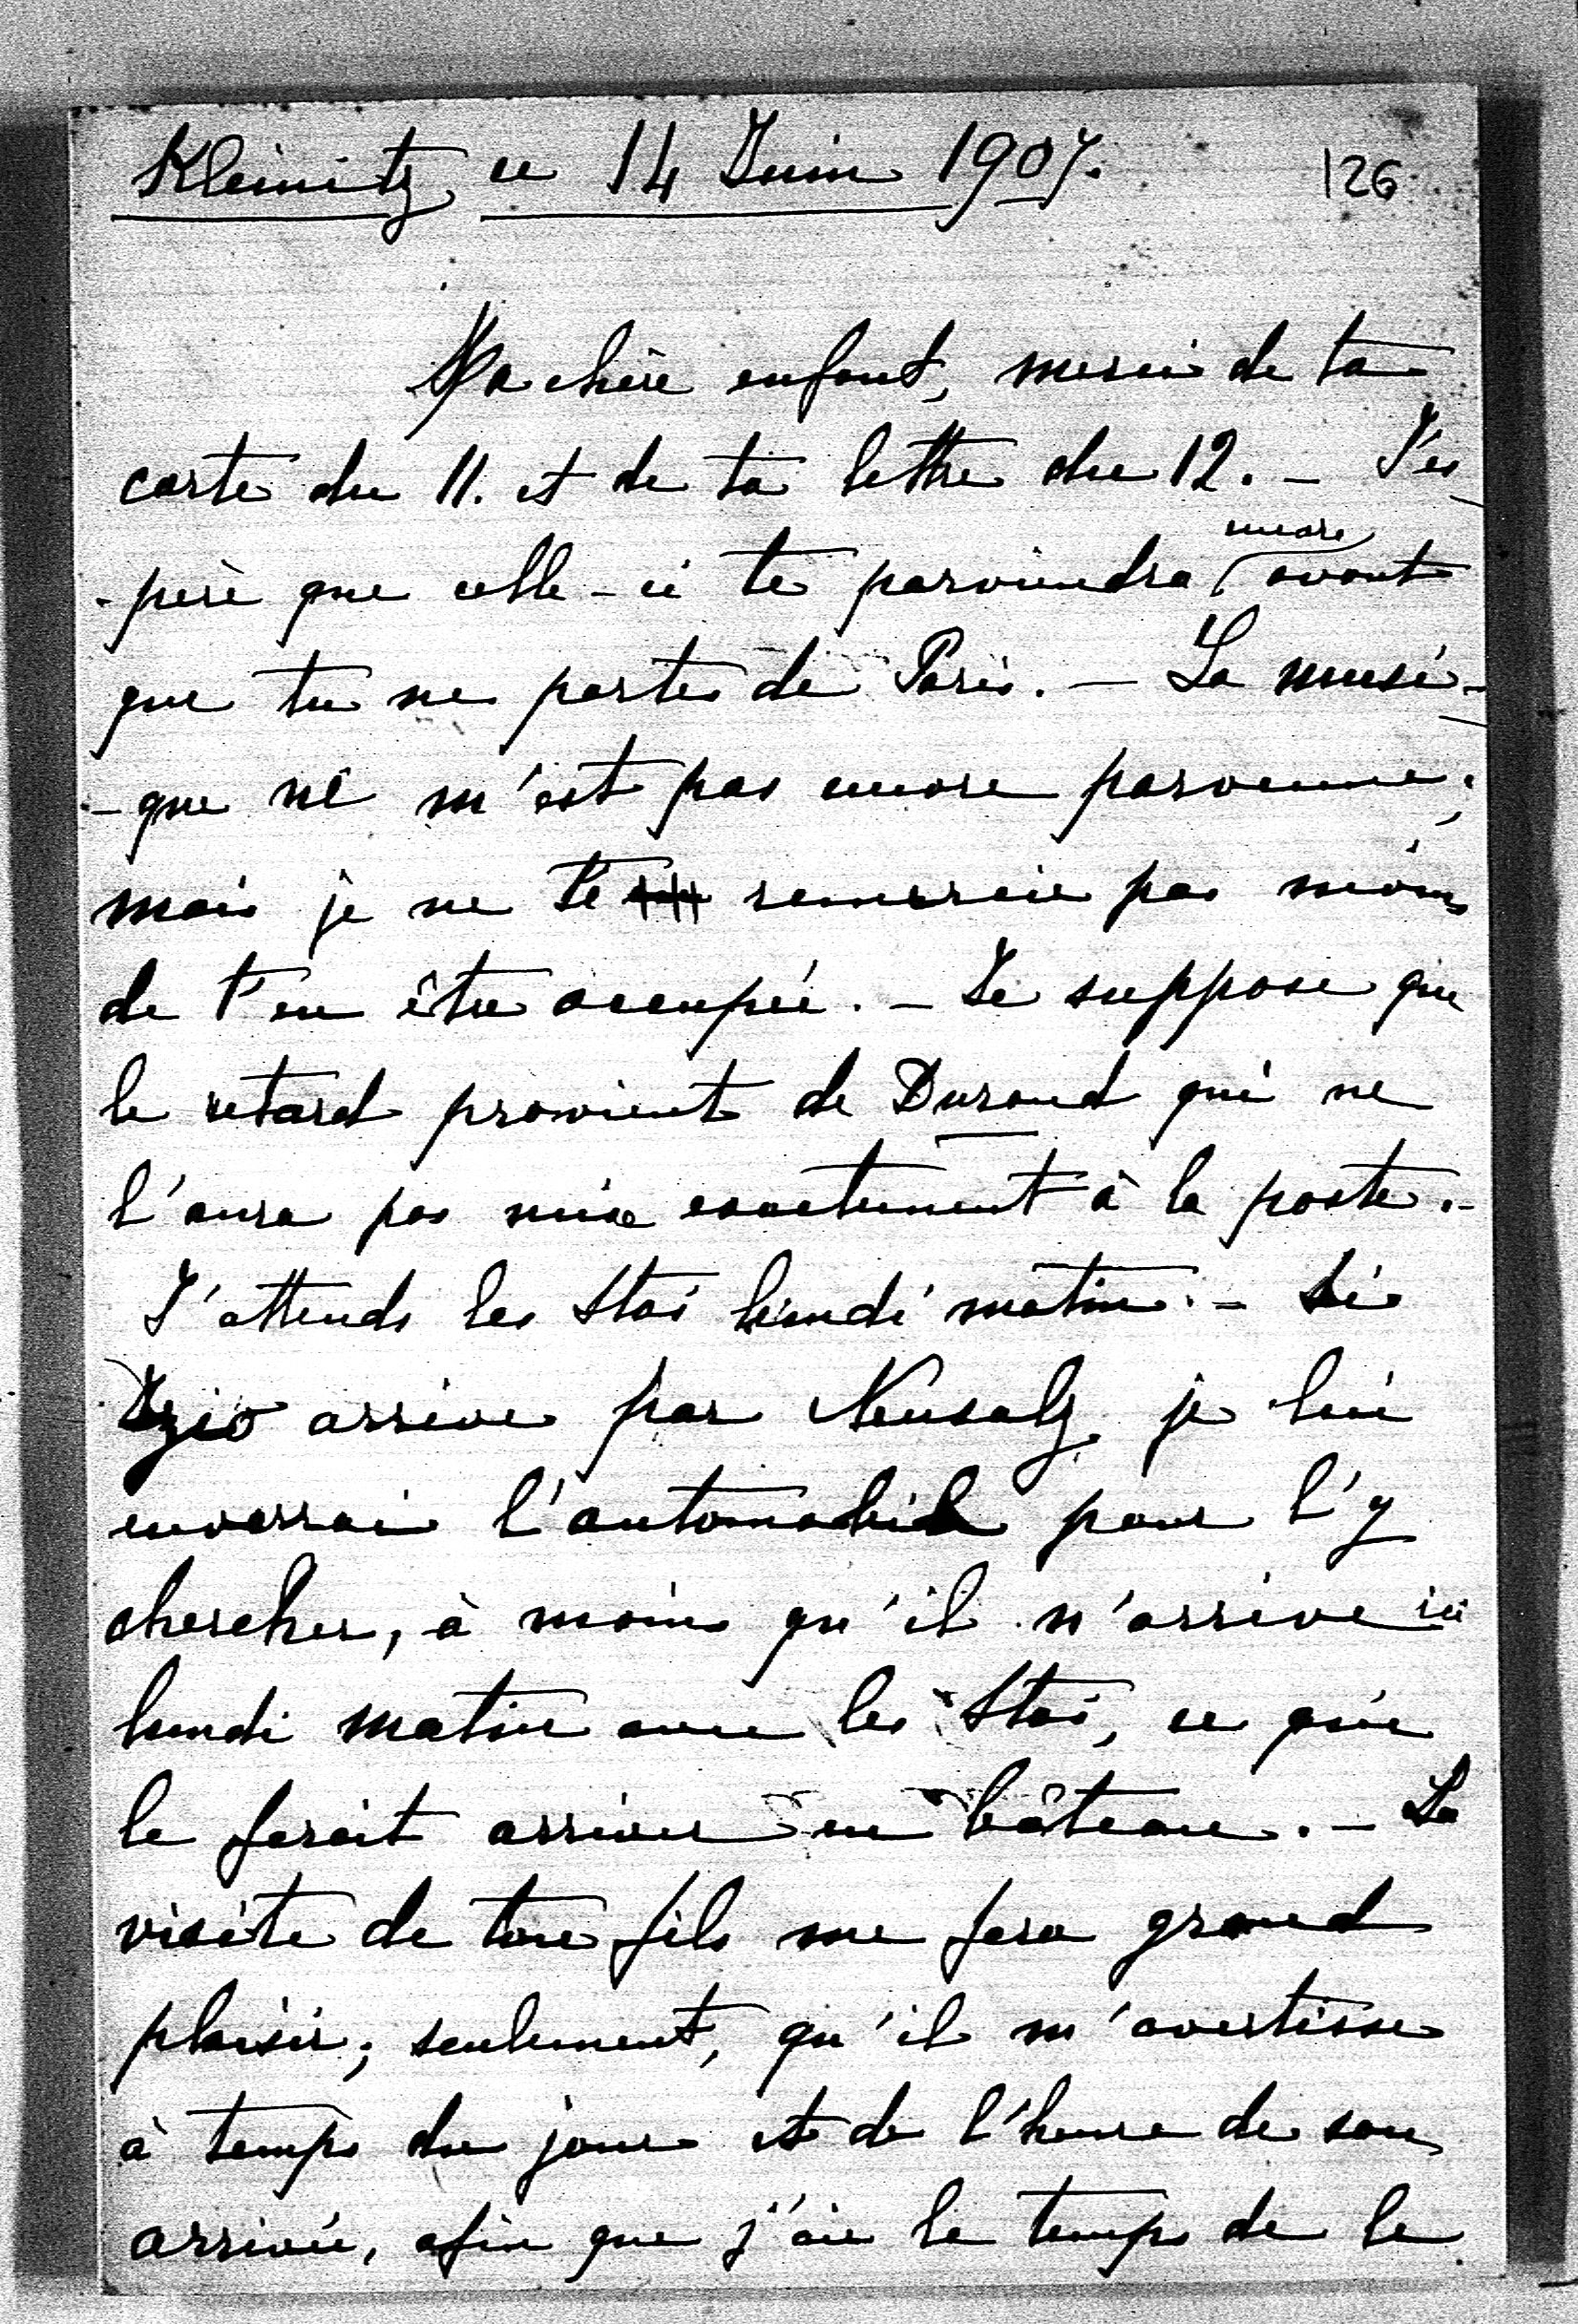 Kleinitz, ce 14 Juin 1907. 126
Ma chère enfant, merci de ta
carte du 11. et de ta lettre du 12. – J'es
-père que celle-ci te parviendra encore avant
que tu ne partes de Paris. – La musi-
-que ne m'est pas encore parvenue;
mais je ne te remercie pas moins
de t'en être occupée. – Je suppose que
le retard provient de Durand qui ne
l'aura pas mise exactement à la poste. –
J'attends les Stas lundi matin. – Si
Izio arrive par Neusalz, je lui
enverrai l'automobile pour l'y
chercher, à moins qu'il n'arrive ici
lundi matin avec les Stas, ce qui
le ferait arriver en bâteau. – La
visite de ton fils me fera grand
plaisir; seulement, qu'il m'avertisse
à temps du jour et de l'heure de son
arrivée, afin que j'aie le temps de le